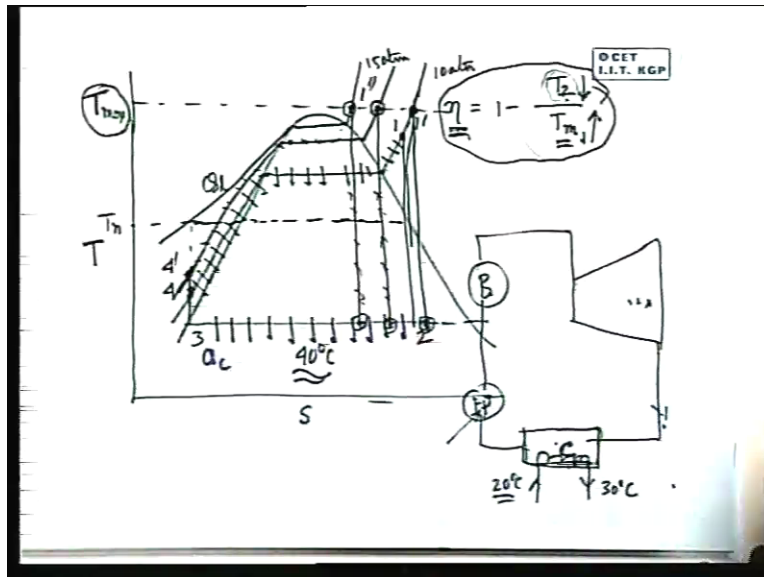 © CET
I.I.T. KGP
15 atm
10 atm
Tmax
1''
1
1'
η = 1 - T2 / Tm
Tm
T
4'
4
3
Qc
40°C
2
S
B
C
20°C
30°C